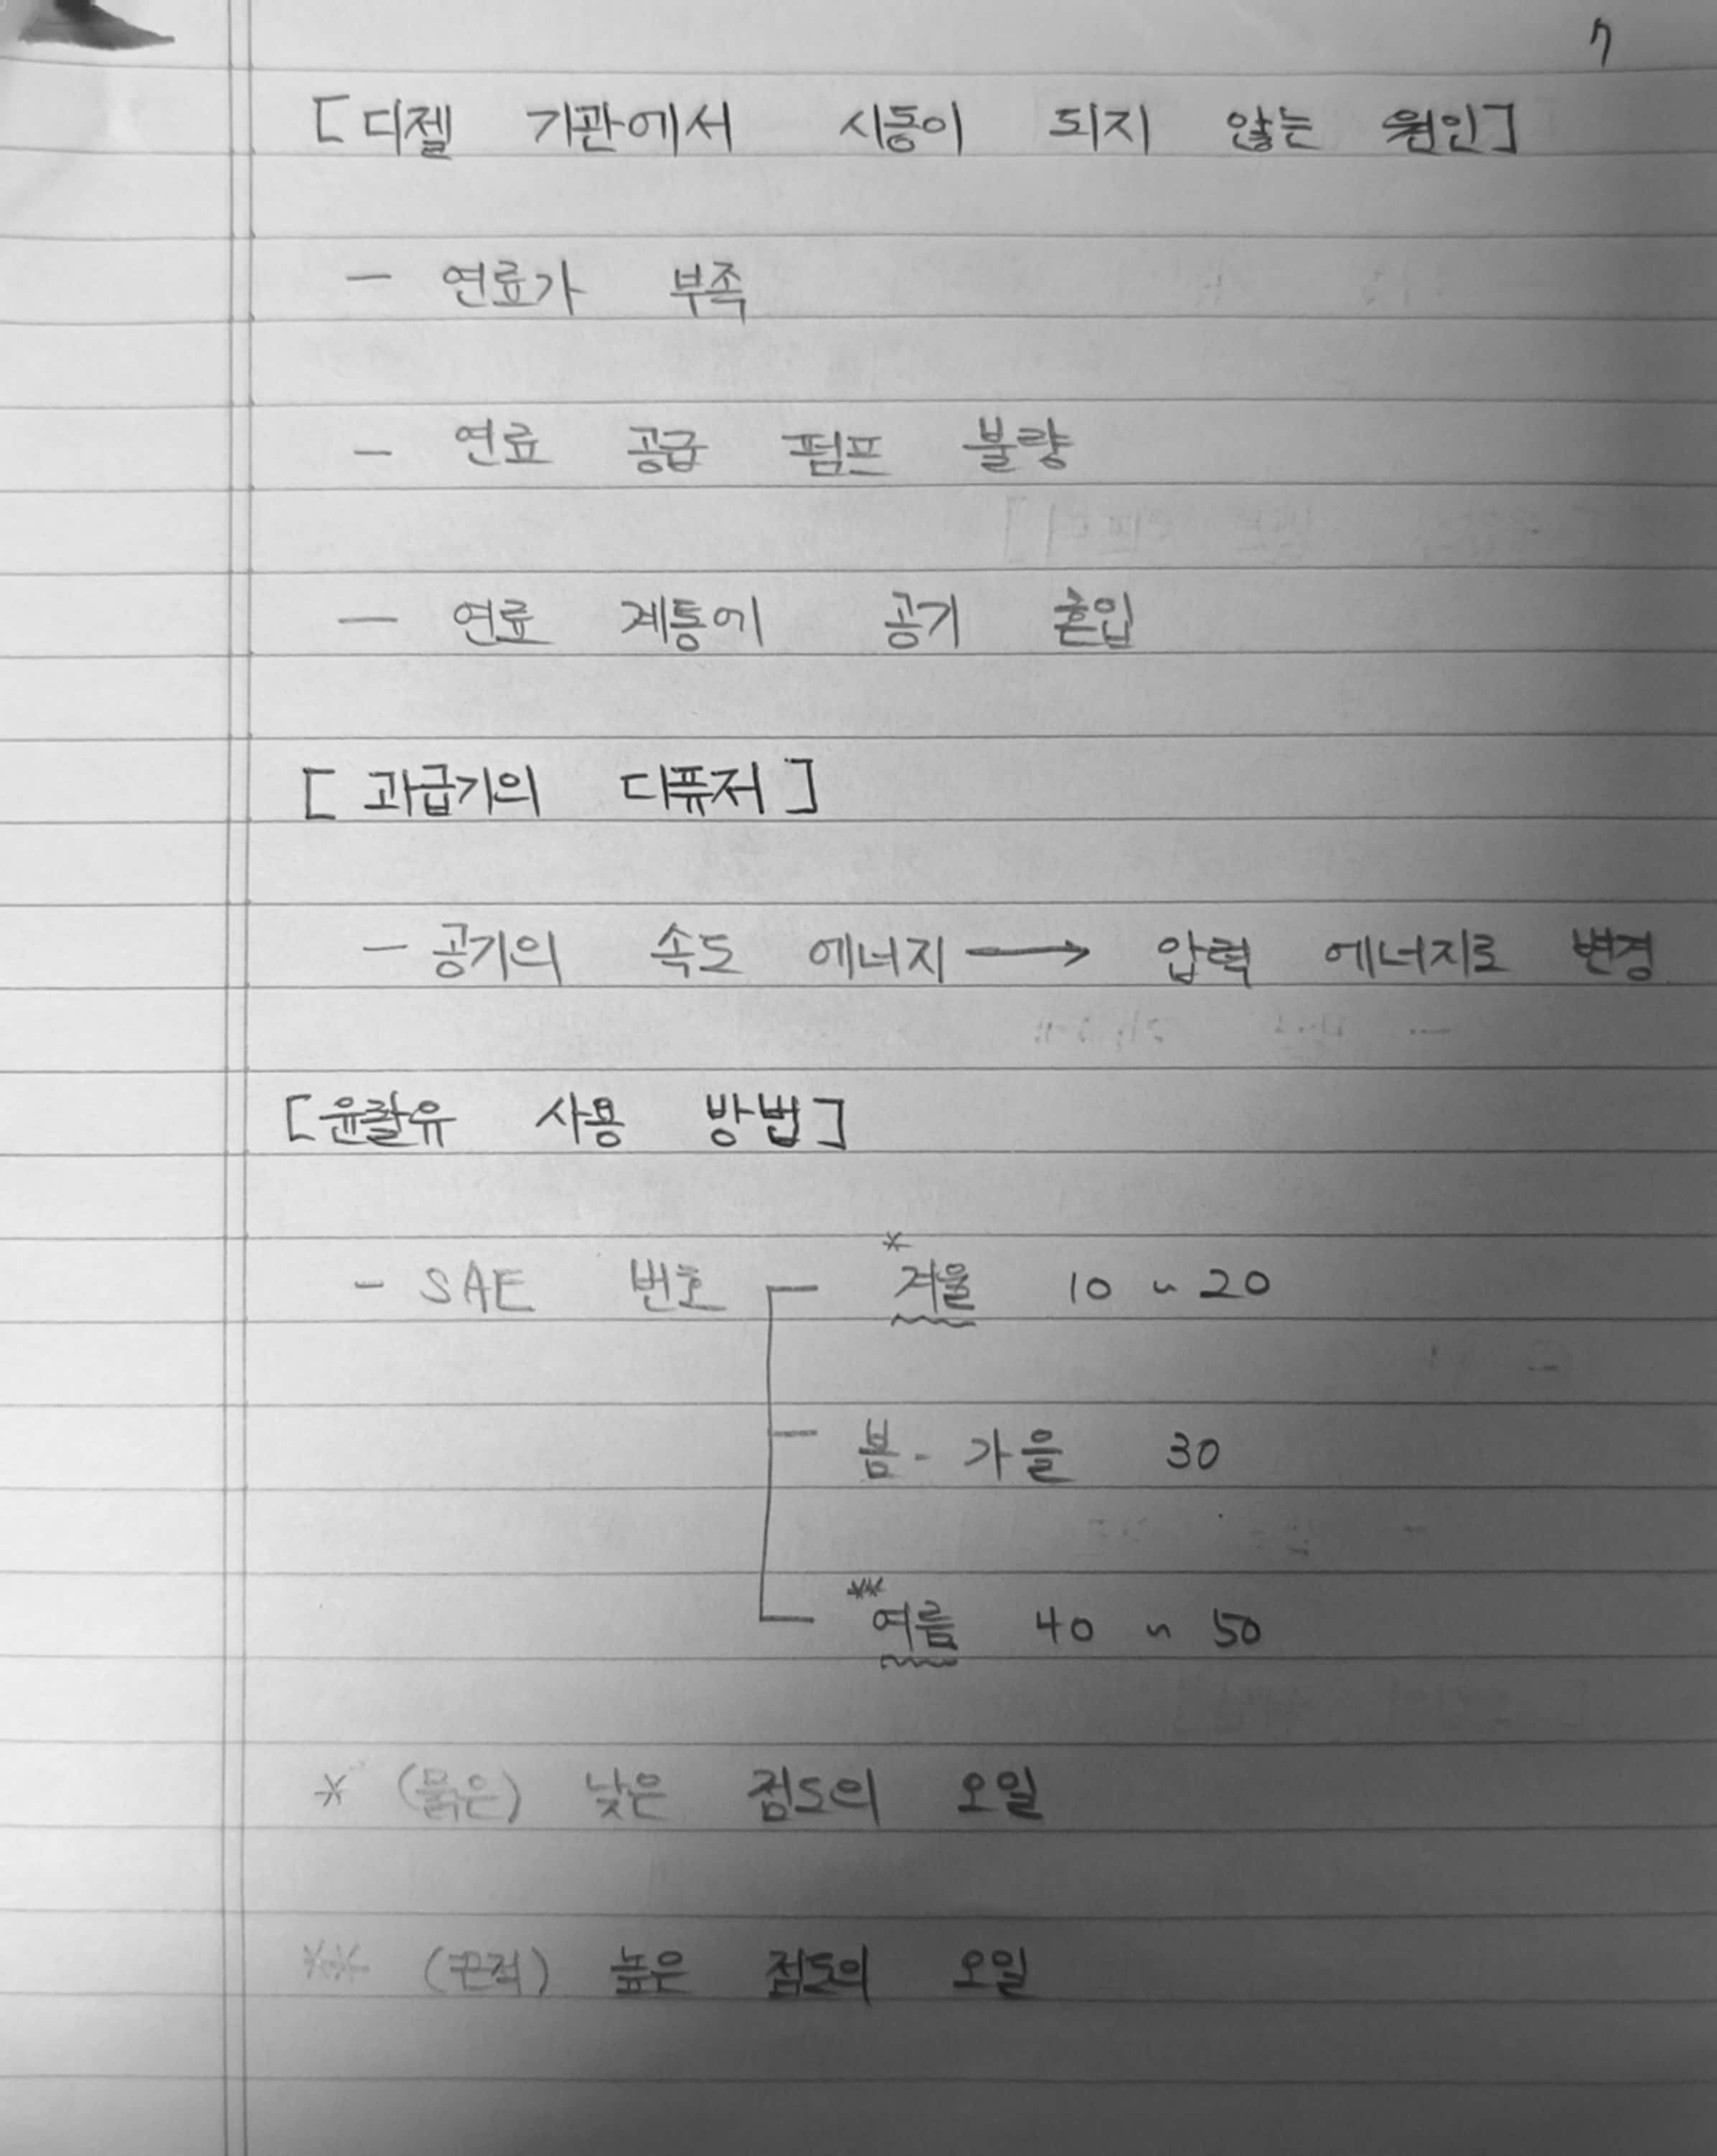 7
[디젤 기관에서 시동이 되지 않는 원인]
- 연료가 부족
- 연료 공급 펌프 불량
- 연료 계통에 공기 흡입
[과급기의 디퓨저]
- 공기의 속도 에너지 → 압력 에너지로 변경
[윤활유 사용 방법]
- SAE 번호
* 겨울 10 ~ 20
봄 - 가을 30
** 여름 40 ~ 50
* (묽은) 낮은 점도의 오일
** (끈적) 높은 점도의 오일